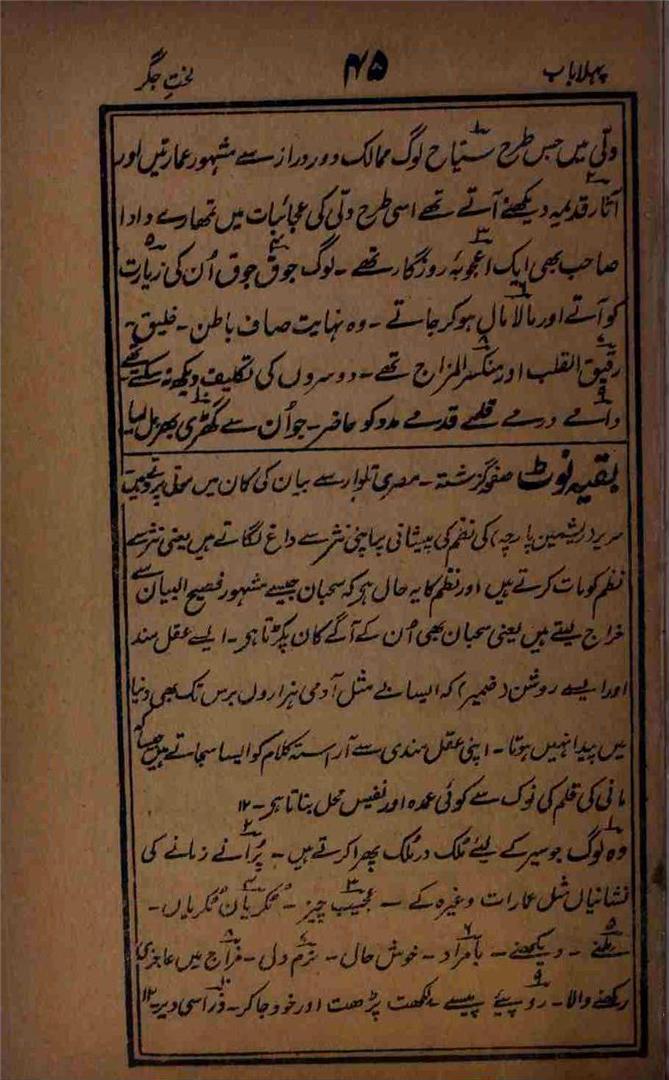 پہلا باب
۴۵
لختِ جگر
دلّی میں جس طرح سیّاح لوگ ممالک دور دراز سے مشہور عمارتیں اور
آثار قدیمہ دیکھنے آتے تھے اسی طرح دلّی کی عجائبات میں تمھارے دادا
صاحب بھی ایک اعجوبۂ روزگار تھے۔ لوگ جوق جوق اُن کی زیارت
کو آتے اور مالا مال ہوکر جاتے۔ وہ نہایت صاف باطن۔ خلیق۔
رقیق القلب اور منکسر المزاج تھے۔ دوسروں کی تکلیف دیکھ نہ سکتے تھے
دامے درمے قلمے قدمے مدد کو حاضر۔ جو اُن سے گھڑی بھر مل لیا
بقیہ نوٹ صفحہ گزشتہ۔ مصری تلوار سے بیان کی کان میں موتی پروتے ہیں
حریر (ریشمین پارچہ) کی نظم کی پیشانی پر اپنی نثر سے داغ لگاتے ہیں یعنی نثر سے
نظم کو مات کرتے ہیں اور نظم کا یہ حال ہو کہ سحبان جیسے مشہور فصیح البیان سے
خراج لیتے ہیں یعنی سحبان بھی اُن کے آگے کان پکڑتا ہو۔ ایسے عقل مند
اور ایسے روشن (ضمیر) کہ ایسا بے مثل آدمی ہزاروں برس تک بھی دنیا
میں پیدا نہیں ہوتا۔ اپنی عقل مندی سے آراستہ کلام کو ایسا سجاتے ہیں جیسا کہ
مانی کی قلم کی نوک سے کوئی عمدہ اور نفیس محل بناتا ہو۔ ۱۲
۱ وہ لوگ جو سیر کے لیئے مُلک در مُلک پھرا کرتے ہیں۔ ۲ پُرانے زمانے کی
نشانیاں مثل عمارات وغیرہ کے۔ ۳ عجیب چیز۔ ۴ ٹکریاں ٹکریاں۔
۵ ملنے۔ دیکھنے۔ ۶ بامراد۔ خوش حال۔ ۷ نرم دل۔ ۸ مزاج میں عاجزی
رکھنے والا۔ ۹ روپیے پیسے لکھت پڑھت اور خود جاکر۔ ۱۰ ذرا سی دیر۔ ۱۲